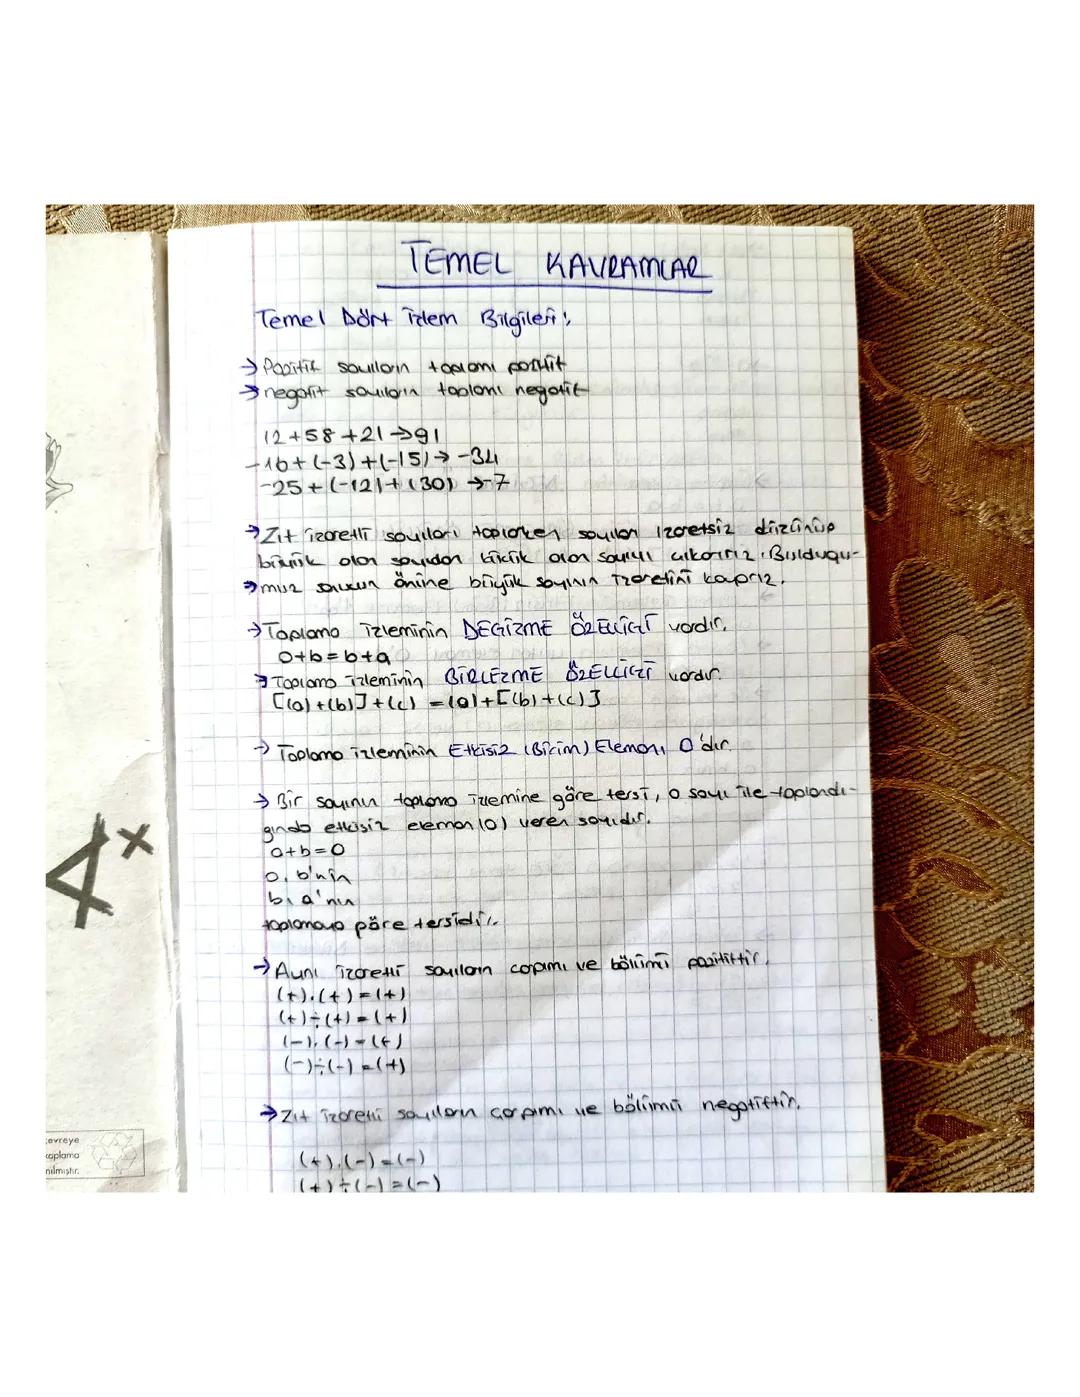 TEMEL KAVRAMLAR
Temel Dört İşlem Bilgileri:
→ Pozitif sayıların toplamı pozitif
→ negatif sayıların toplamı negatif
12+58+21→91
-16+(-3)+(-15)→-34
-25+(-12)+(30)→-7
→ Zıt işaretli sayıları toplarken sayıları işaretsiz düşünüp
büyük olan sayıdan küçük olan sayıyı çıkarırız. Bulduğu-
→ muz sonucun önüne büyük sayının işaretini koyarız.
→ Toplama işleminin DEĞİŞME ÖZELLİĞİ vardır.
a+b=b+a
→ Toplama işleminin BİRLEŞME ÖZELLİĞİ vardır.
[(a)+(b)]+(c)=(a)+[(b)+(c)]
→ Toplama işleminin Etkisiz (Birim) Elemanı 0'dır.
→ Bir sayının toplama işlemine göre tersi, o sayı ile toplandı-
ğında etkisiz eleman (0) veren sayıdır.
a+b=0
a, b'nin
b, a'nın
toplamaya göre tersidir.
→ Aynı işaretli sayıların çarpımı ve bölümü pozitiftir.
(+).(+)=(+)
(+)÷(+)=(+)
(-).(-)=(+)
(-)÷(-)=(+)
→ Zıt işaretli sayıların çarpımı ve bölümü negatiftir.
(+).(-)=(-)
(+)÷(-)=(-)
A^x
çevreye
kaplama
nılmıştır.